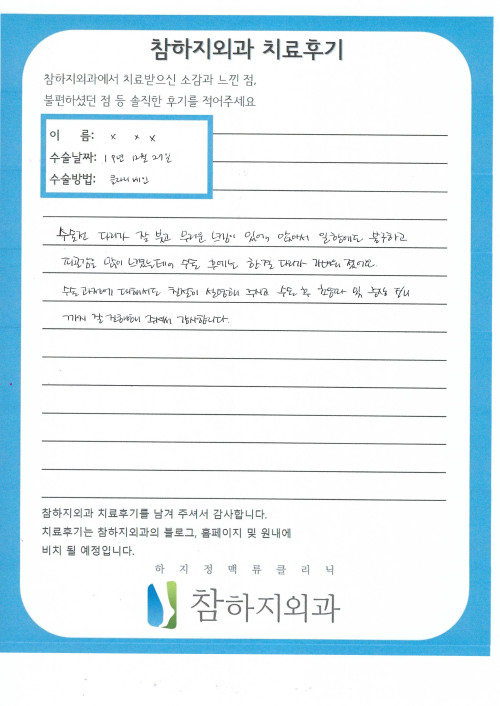 참하지외과 치료후기
참하지외과에서 치료받으신 소감과 느낀 점,
불편하셨던 점 등 솔직한 후기를 적어주세요
이 름: x x x
수술날짜: 19년 12월 27일
수술방법: 클라리베인
수술전 다리가 잘 붓고 무거운 느낌이 있어서 앉아서 일함에도 불구하고
피로감을 많이 느꼈는데 수술 후에는 한결 다리가 가벼워 졌어요.
수술과정에 대해서도 친절히 설명해 주시고 수술 후
까지 잘 진행해 주셔서 감사합니다.
참하지외과 치료후기를 남겨 주셔서 감사합니다.
치료후기는 참하지외과의 블로그, 홈페이지 및 원내에
비치 될 예정입니다.
하지정맥류클리닉
참하지외과